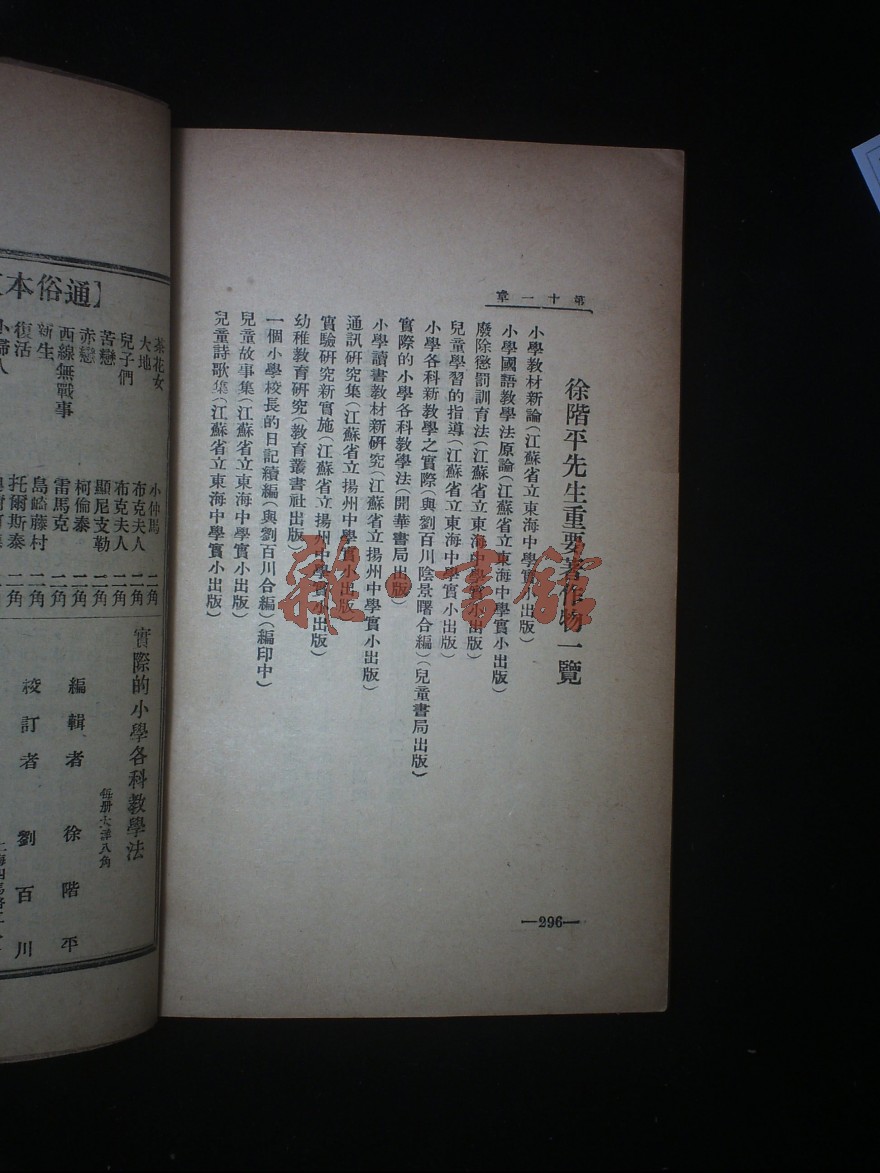 第十一章
徐階平先生重要著作物一覽
小學教材新論(江蘇省立東海中學實小出版)
小學國語教學法原論(江蘇省立東海中學實小出版)
廢除懲罰訓育法(江蘇省立東海中學實小出版)
兒童學習的指導(江蘇省立東海中學實小出版)
小學各科新教學之實際(與劉百川陰景曙合編)(兒童書局出版)
實際的小學各科教學法(開華書局出版)
小學讀書教材新研究(江蘇省立揚州中學實小出版)
通訊研究集(江蘇省立揚州中學實小出版)
實驗研究新實施(江蘇省立揚州中學實小出版)
幼稚教育研究(教育叢書社出版)
一個小學校長的日記續編(與劉百川合編)(編印中)
兒童故事集(江蘇省立東海中學實小出版)
兒童詩歌集(江蘇省立東海中學實小出版)
—296—
雜·書館
【通俗本
茶花女 小仲馬 一角
大地 布克夫人 一角
兒子們 布克夫人 一角
苦戀 顯尼支勒 一角
赤戀 柯倫泰 一角
西線無戰事 雷馬克 一角
新生 島崎藤村 二角
復活 托爾斯泰 一角
小婦人
實際的小學各科教學法
每册大洋八角
編輯者 徐階平
校訂者 劉百川